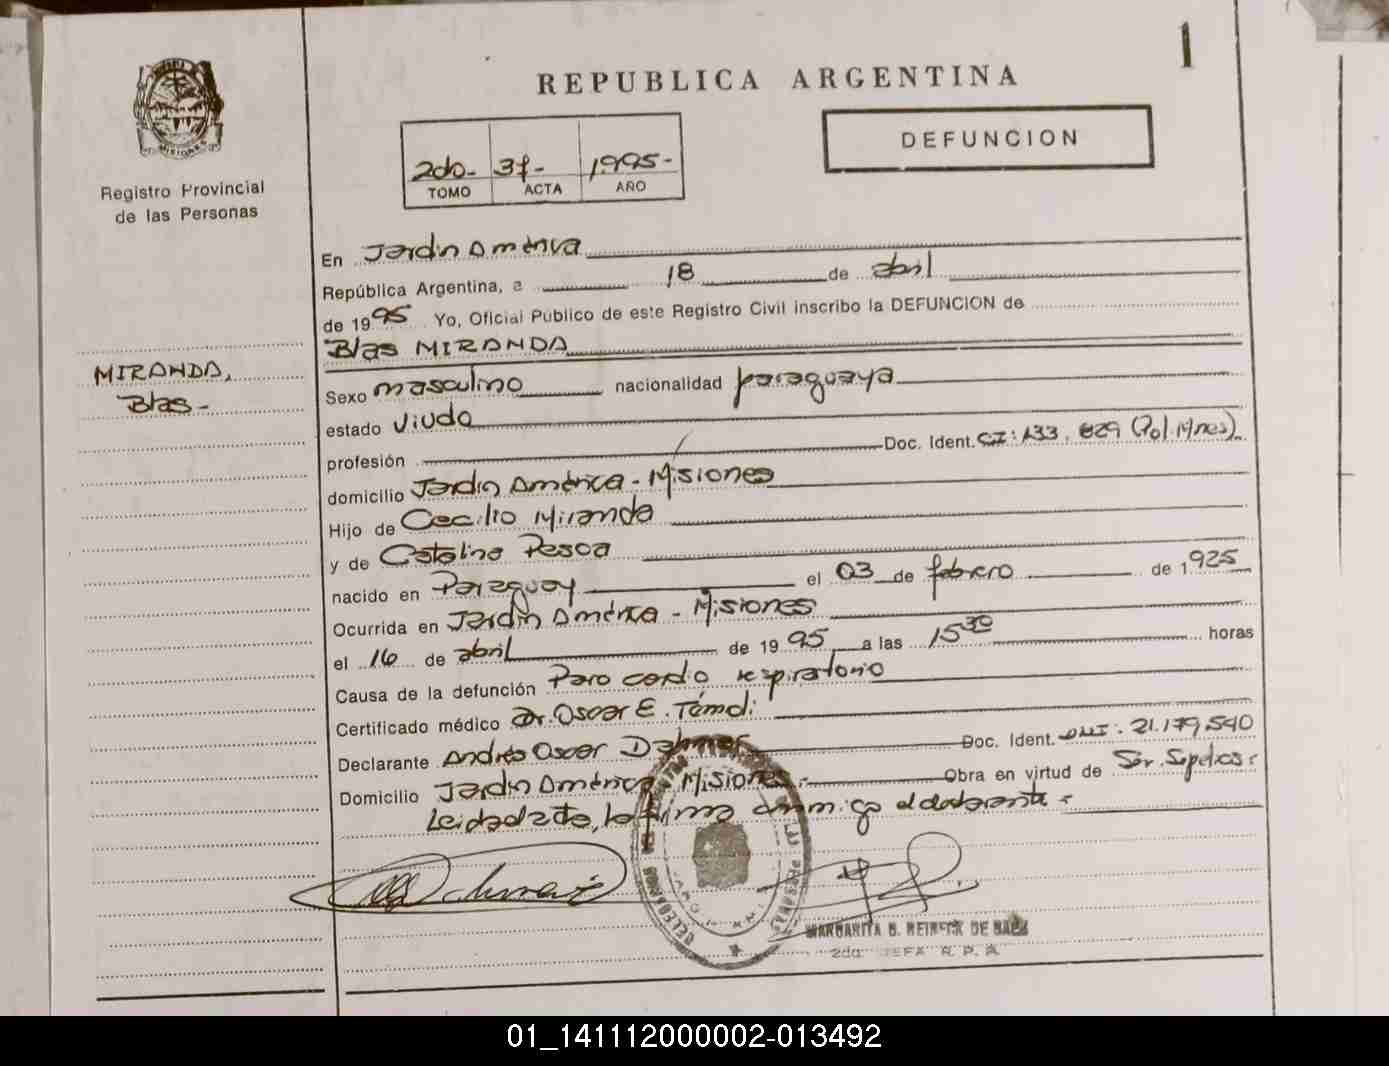 1
REPUBLICA ARGENTINA
DEFUNCION
2do- 37- 1995-
TOMO ACTA AÑO
MISIONES
Registro Provincial
de las Personas
MIRANDA,
Blas-
En Jardín América
República Argentina, a 18 de abril
de 1995 Yo, Oficial Público de este Registro Civil inscribo la DEFUNCION de
Blas MIRANDA
Sexo masculino nacionalidad paraguaya
estado viudo
profesión Doc. Ident. CI: 133.829 (Pol. Mnes).
domicilio Jardín América - Misiones
Hijo de Cecilio Miranda
y de Catalina Pesoa
nacido en Paraguay el 03 de febrero de 1925
Ocurrida en Jardín América - Misiones
el 16 de abril de 1995 a las 15 30 horas
Causa de la defunción Paro cardio respiratorio
Certificado médico Dr. Oscar E.
Declarante Andrés Oscar Doc. Ident. DNI: 21.179.540
Domicilio Jardín América - Misiones.- Obra en virtud de Ser. Sepelios-
Leida el acta, la firma conmigo el declarante-
MARGARITA B. DE BAEZ
2da. JEFA R. P. A.
01_141112000002-013492